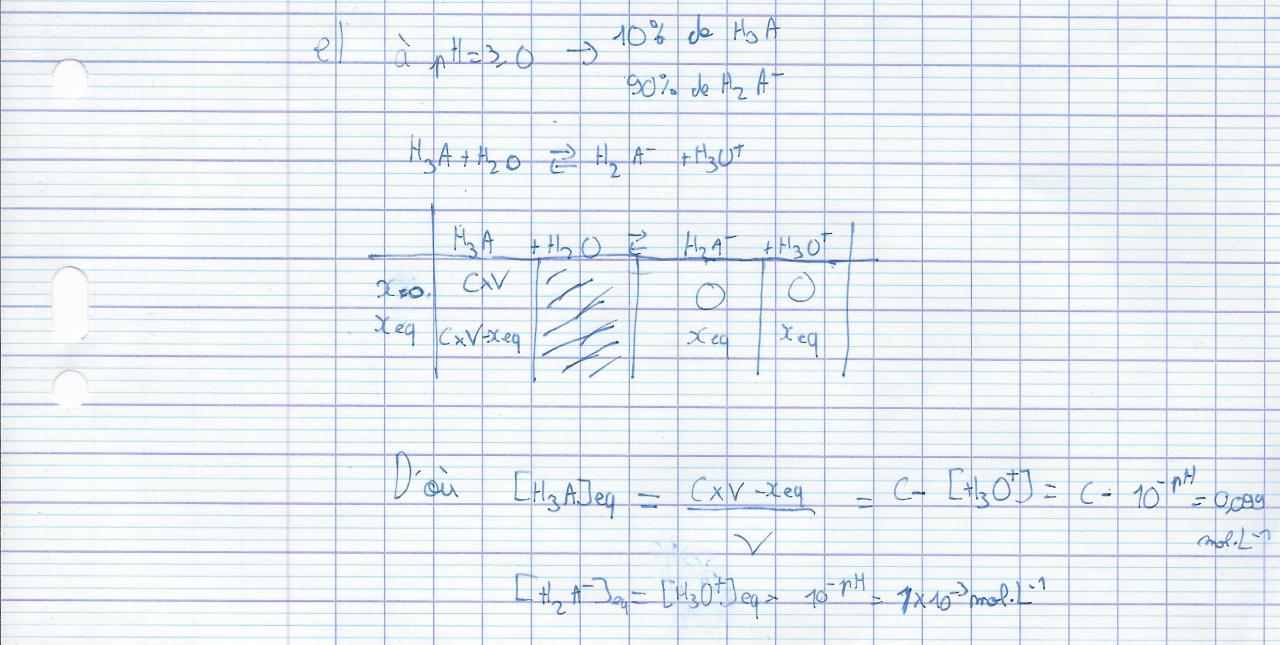 e) à pH=3,0 → 10% de H₃A
90% de H₂A⁻
H₃A + H₂O ⇄ H₂A⁻ + H₃O⁺
H₃A + H₂O ⇄ H₂A⁻ + H₃O⁺
x=0. CxV 0 0
xeq CxV-xeq xeq xeq
D'où [H₃A]eq = (CxV-xeq)/V = C - [H₃O⁺] = C - 10⁻ᵖᴴ = 0,099
mol.L⁻¹
[H₂A⁻]eq = [H₃O⁺]eq = 10⁻ᵖᴴ = 1x10⁻³ mol.L⁻¹